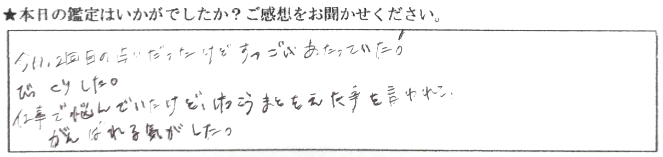 ★本日の鑑定はいかがでしたか？ご感想をお聞かせください。
今日、2回目の占いだったけどすっごいあたっていた！
びっくりした。
仕事で悩んでいたけど、まともえた事を言われて、
がんばれる気がした。